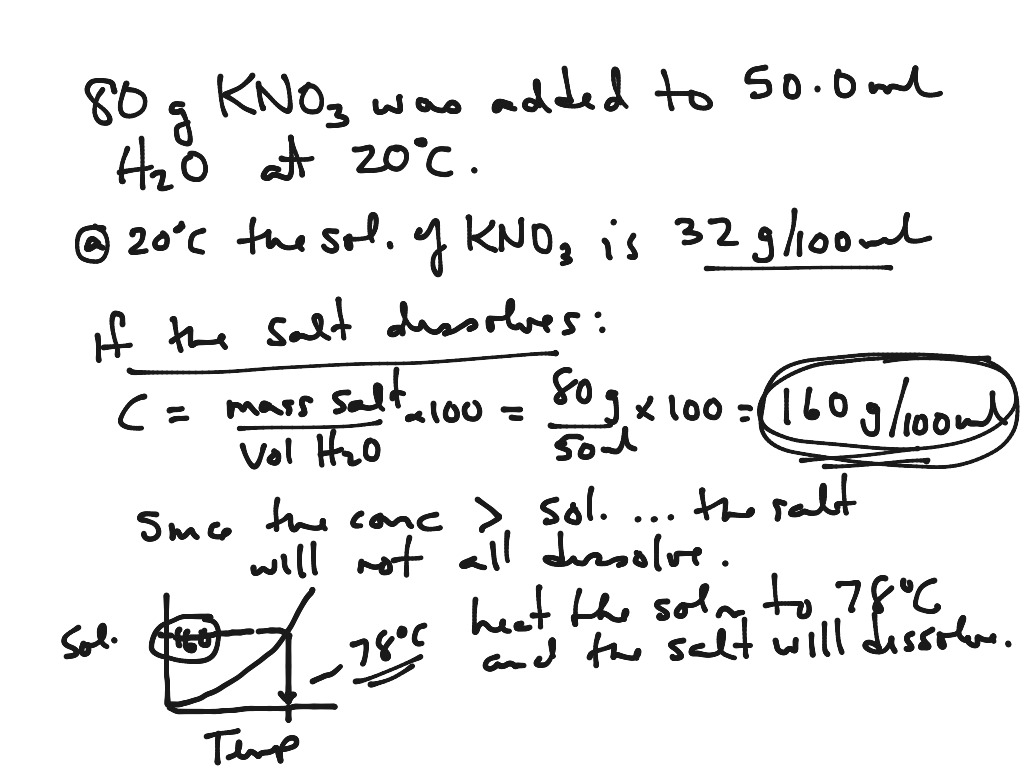 80 g KNO₃ was added to 50.0 ml
H₂O at 20°C.
@ 20°C the sol. of KNO₃ is 32 g/100 ml
If the salt dissolves:
C = mass salt/Vol H₂O x 100 = 80 g/50 ml x 100 = 160 g/100 ml
Since the conc > sol. ... the salt
will not all dissolve.
heat the soln to 78°C
and the salt will dissolve.
Sol. 160 78°C
Temp